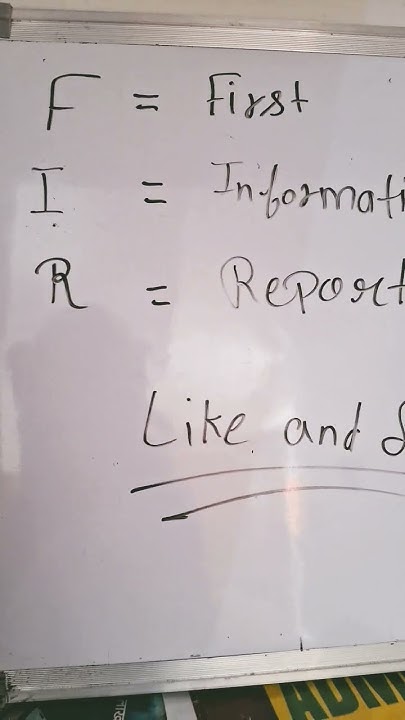 F = First
I = Informati
R = Report
Like and
ADM